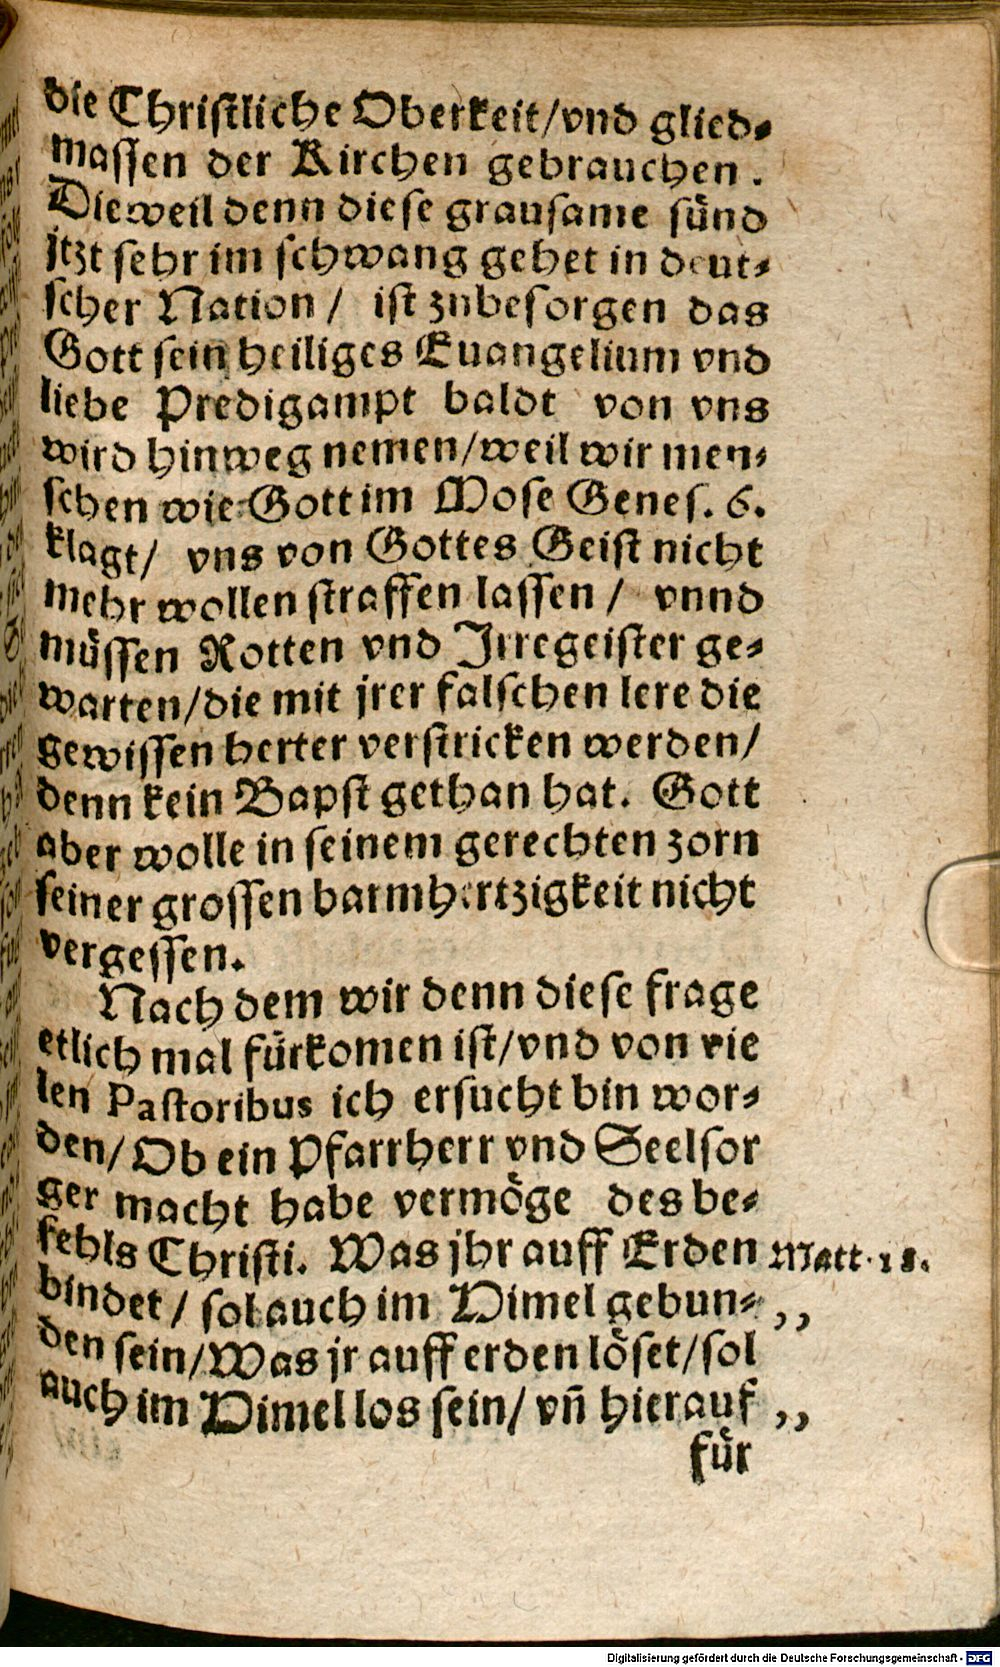 die Christliche Oberkeit/vnd glied⸗
massen der Kirchen gebrauchen.
Dieweil denn diese grausame sünd
jtzt sehr im schwang gehet in deut⸗
scher Nation/ ist zubesorgen das
Gott sein heiliges Euangelium vnd
liebe Predigampt baldt von vns
wird hinweg nemen/weil wir men⸗
schen wie Gott im Mose Genes. 6.
klagt/ vns von Gottes Geist nicht
mehr wollen straffen lassen/ vnnd
müssen Rotten vnd Irregeister ge⸗
warten/die mit jrer falschen lere die
gewissen herter verstricken werden/
denn kein Bapst gethan hat. Gott
aber wolle in seinem gerechten zorn
seiner grossen barmhertzigkeit nicht
vergessen.
Nach dem wir denn diese frage
etlich mal fürkomen ist/vnd von vie
len Pastoribus ich ersucht bin wor⸗
den/Ob ein Pfarrherr vnd Seelsor
ger macht habe vermöge des be⸗
fehls Christi. Was jhr auff Erden Matt. 18.
bindet/ sol auch im Himel gebun⸗ ,,
den sein/Was jr auff erden löset/sol
auch im Himel los sein/ vñ hierauf ,,
für
Digitalisierung gefördert durch die Deutsche Forschungsgemeinschaft - DFG